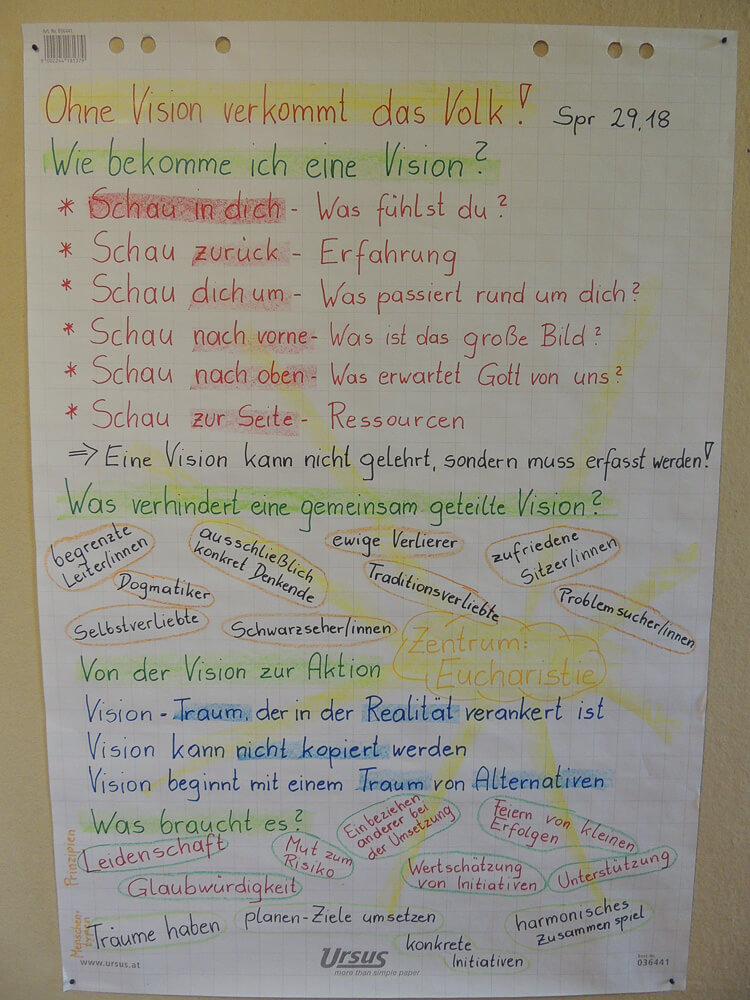 Art. Nr. 036441
9002244781379
Ohne Vision verkommt das Volk! Spr 29,18
Wie bekomme ich eine Vision?
* Schau in dich - Was fühlst du?
* Schau zurück - Erfahrung
* Schau dich um - Was passiert rund um dich?
* Schau nach vorne - Was ist das große Bild?
* Schau nach oben - Was erwartet Gott von uns?
* Schau zur Seite - Ressourcen
⇒ Eine Vision kann nicht gelehrt, sondern muss erfasst werden!
Was verhindert eine gemeinsam geteilte Vision?
begrenzte
Leiter/innen
ausschließlich
konkret Denkende
ewige Verlierer
zufriedene
Sitzer/innen
Dogmatiker
Traditionsverliebte
Problemsucher/innen
Selbstverliebte
Schwarzseher/innen
Zentrum:
Eucharistie
Von der Vision zur Aktion
Vision - Traum, der in der Realität verankert ist
Vision kann nicht kopiert werden
Vision beginnt mit einem Traum von Alternativen
Was braucht es?
Prinzipien
Leidenschaft
Mut zum
Risiko
Einbeziehen
anderer bei
der Umsetzung
Feiern von kleinen
Erfolgen
Glaubwürdigkeit
Wertschätzung
von Initiativen
Unterstützung
Menschen-
typen
Träume haben
planen-Ziele umsetzen
harmonisches
Zusammenspiel
konkrete
Initiativen
www.ursus.at
Ursus
more than simple paper
Best.-Nr.
036441